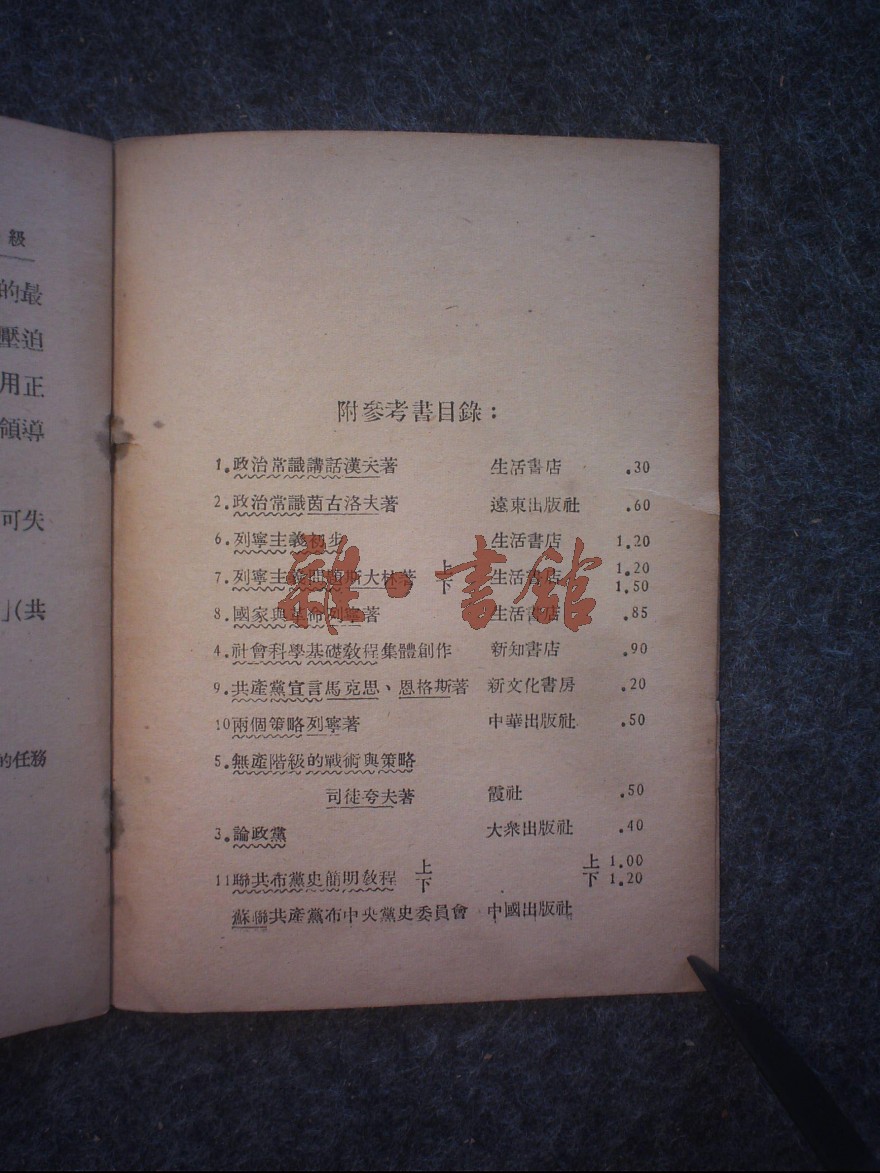 級
的最
壓迫
用正
領導
可失
」(共
的任務
附參考書目錄：
1.政治常識講話漢夫著 生活書店 .30
2.政治常識茵古洛夫著 遠東出版社 .60
6.列寧主義初步 生活書店 1.20
7.列寧主義問題斯大林著 上下 生活書店 1.20 1.50
8.國家與革命列寧著 生活書店 .85
4.社會科學基礎教程集體創作 新知書店 .90
9.共產黨宣言馬克思、恩格斯著 新文化書房 .20
10兩個策略列寧著 中華出版社 .50
5.無產階級的戰術與策略
司徒夸夫著 霞社 .50
3.論政黨 大衆出版社 .40
11聯共布黨史簡明教程 上下 上 1.00 下 1.20
蘇聯共產黨布中央黨史委員會 中國出版社
雜·書館